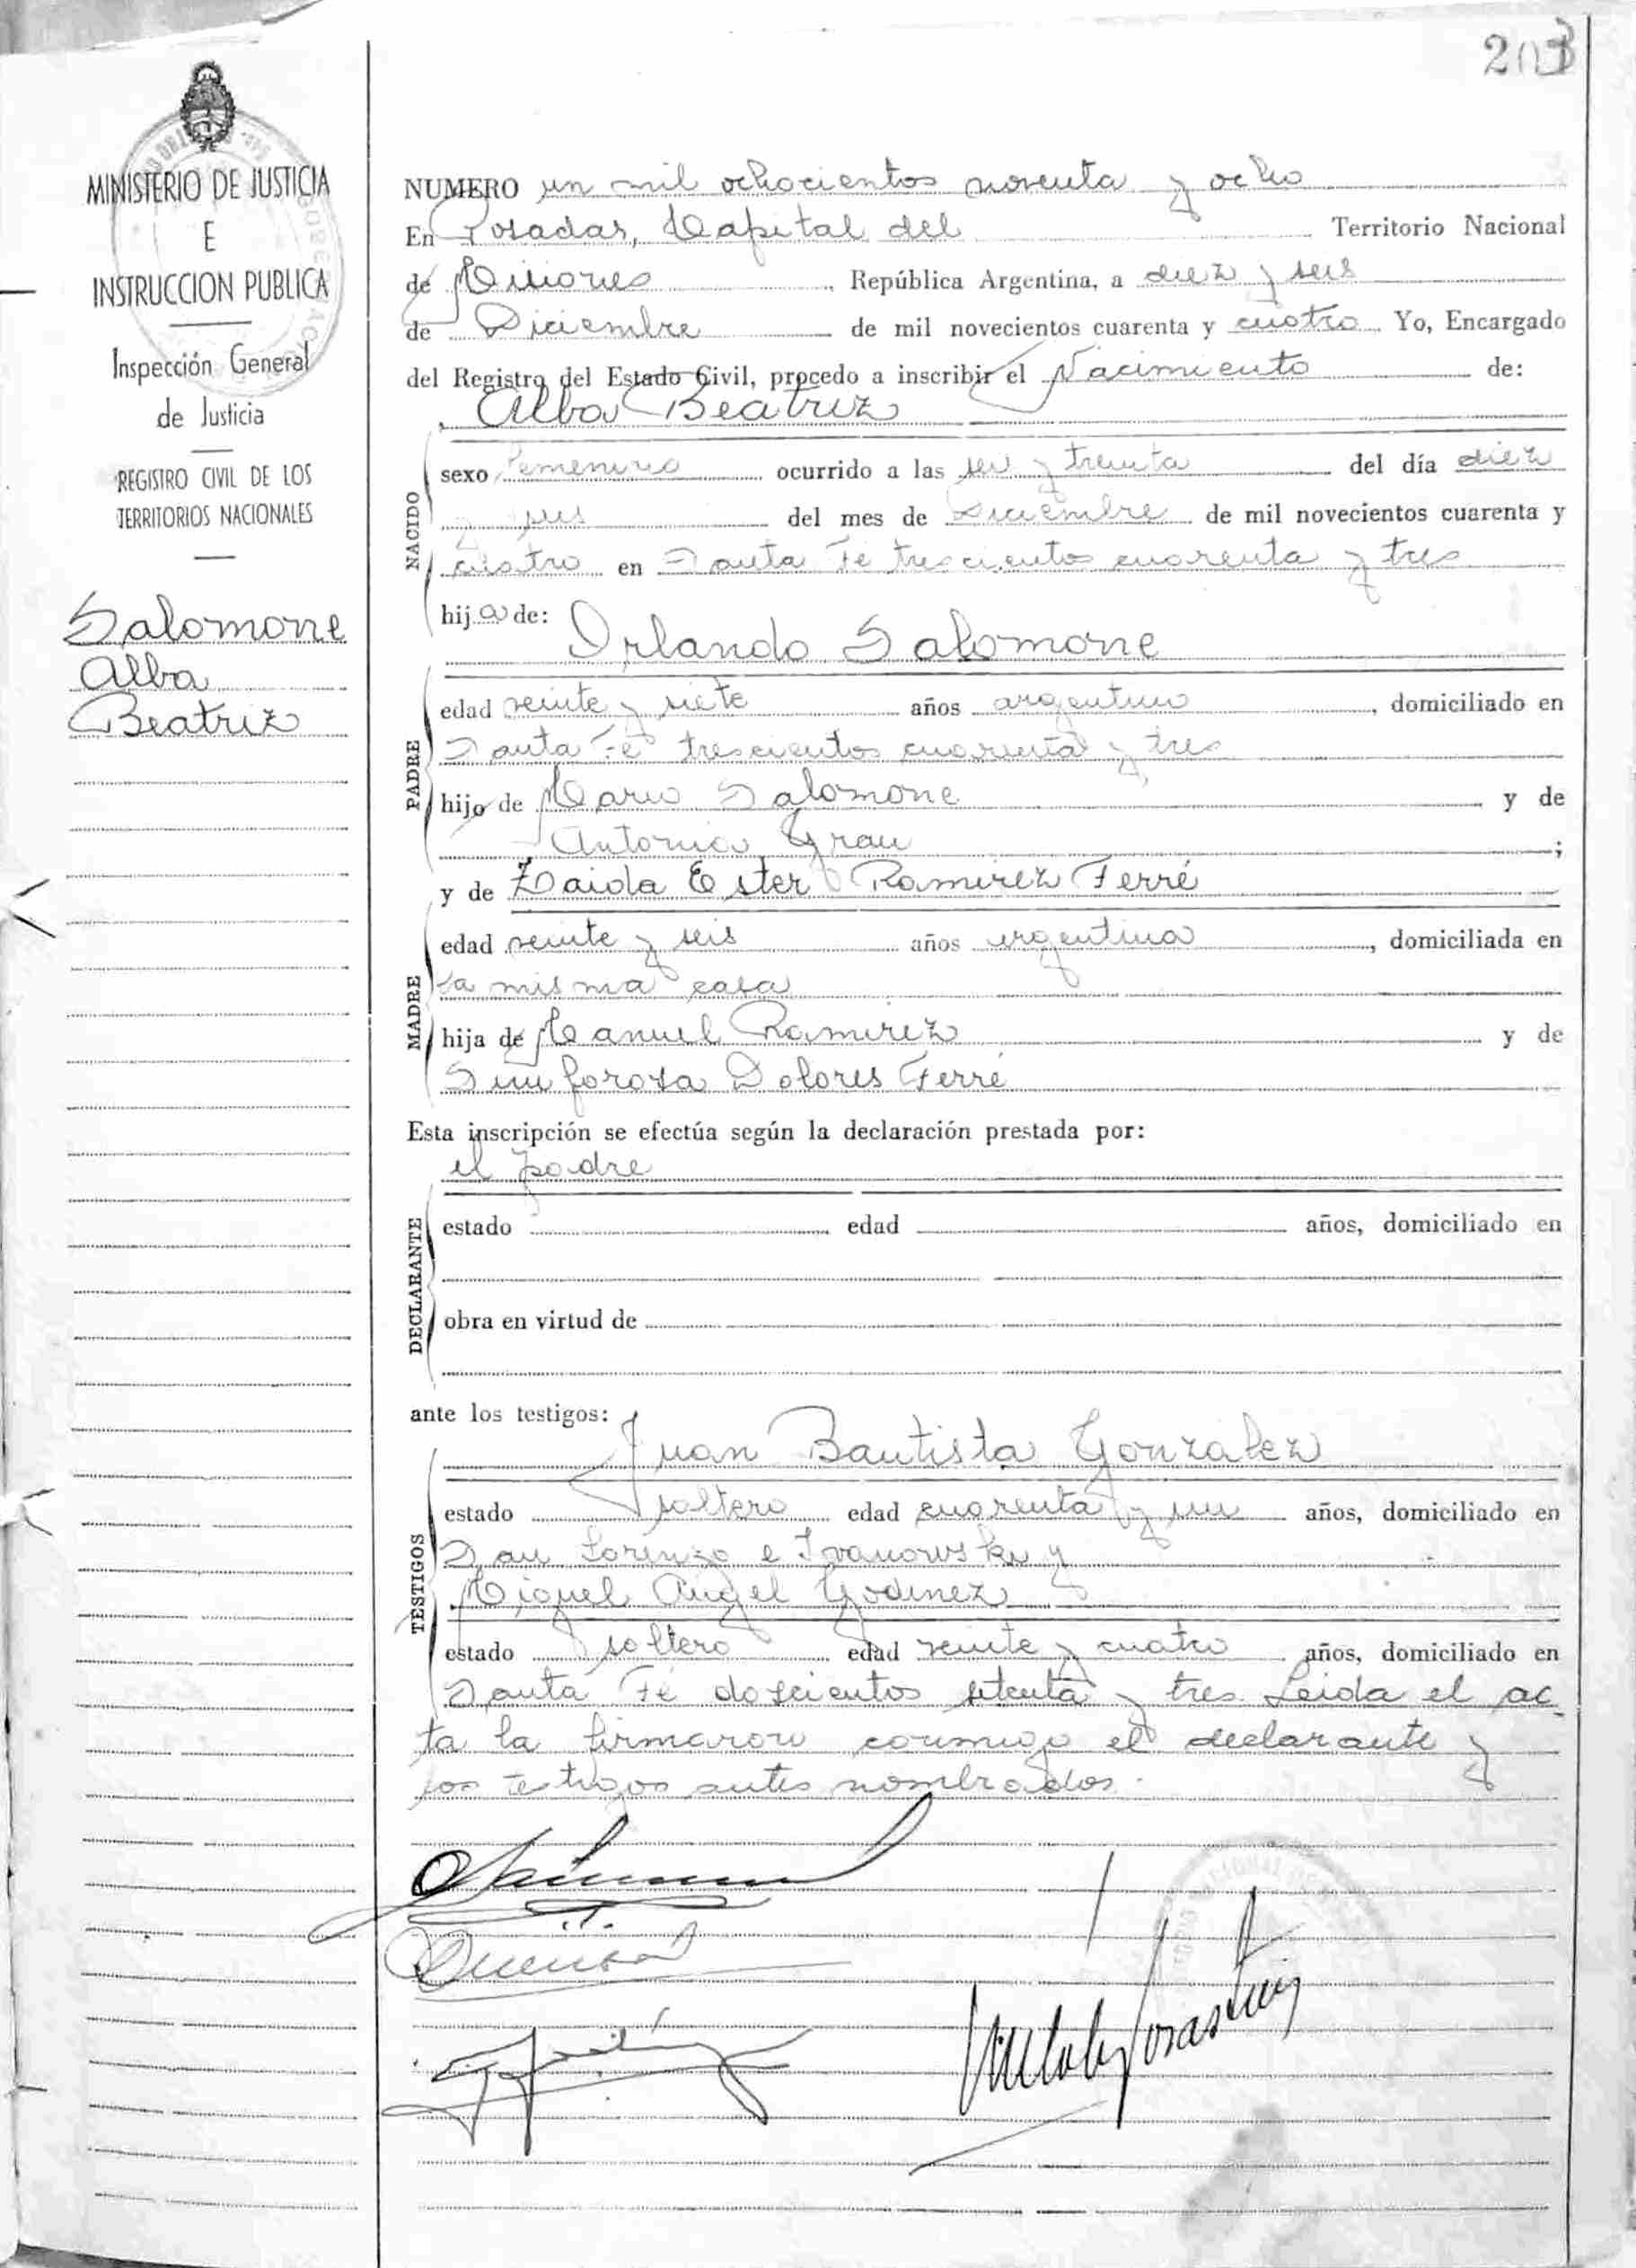 203
MINISTERIO DE JUSTICIA
E
INSTRUCCION PUBLICA
Inspección General
de Justicia
REGISTRO CIVIL DE LOS
TERRITORIOS NACIONALES
Salomone
Alba
Beatriz
NUMERO un mil ochocientos noventa y ocho
En Posadas, Capital del Territorio Nacional
de Misiones, República Argentina, a diez y seis
de Diciembre de mil novecientos cuarenta y cuatro Yo, Encargado
del Registro del Estado Civil, procedo a inscribir el Nacimiento de:
Alba Beatriz
NACIDO
sexo Femenino ocurrido a las seis y treinta del día diez
y seis del mes de Diciembre de mil novecientos cuarenta y
cuatro en Santa Fé trescientos cuarenta y tres
hija de:
Orlando Salomone
PADRE
edad veinte y siete años argentino, domiciliado en
Santa Fé trescientos cuarenta y tres
hijo de Mario Salomone y de
Antonia Grau ;
y de Zaida Ester Ramirez Ferré
MADRE
edad veinte y seis años argentina, domiciliada en
la misma casa
hija de Manuel Ramirez y de
Sinforosa Dolores Ferré
Esta inscripción se efectúa según la declaración prestada por:
el padre
DECLARANTE
estado edad años, domiciliado en
obra en virtud de
ante los testigos:
Juan Bautista Gonzalez
TESTIGOS
estado soltero edad cuarenta y un años, domiciliado en
San Lorenzo e Ivanowsky y
Miguel Angel Godinez
estado soltero edad veinte y cuatro años, domiciliado en
Santa Fé doscientos setenta y tres. Leida el ac
ta la firmaron conmigo el declarante y
los testigos antes nombrados.